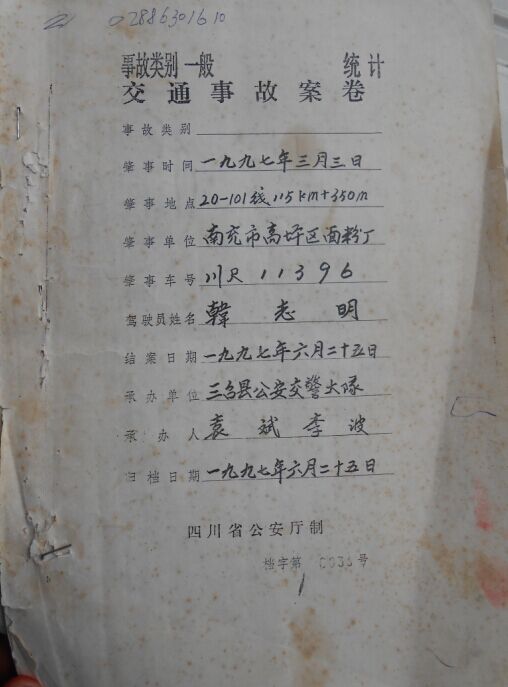 02886301610
事故类别 一般 统计
交通事故案卷
事故类别
肇事时间 一九九七年三月三日
肇事地点 20-101线115km+350m
肇事单位 南充市高坪区面粉厂
肇事车号 川R11396
驾驶员姓名 韓志明
结案日期 一九九七年六月二十五日
承办单位 三台县公安交警大隊
承办人 袁斌 李波
归档日期 一九九七年六月二十五日
四川省公安厅制
档字第 0033 号
1